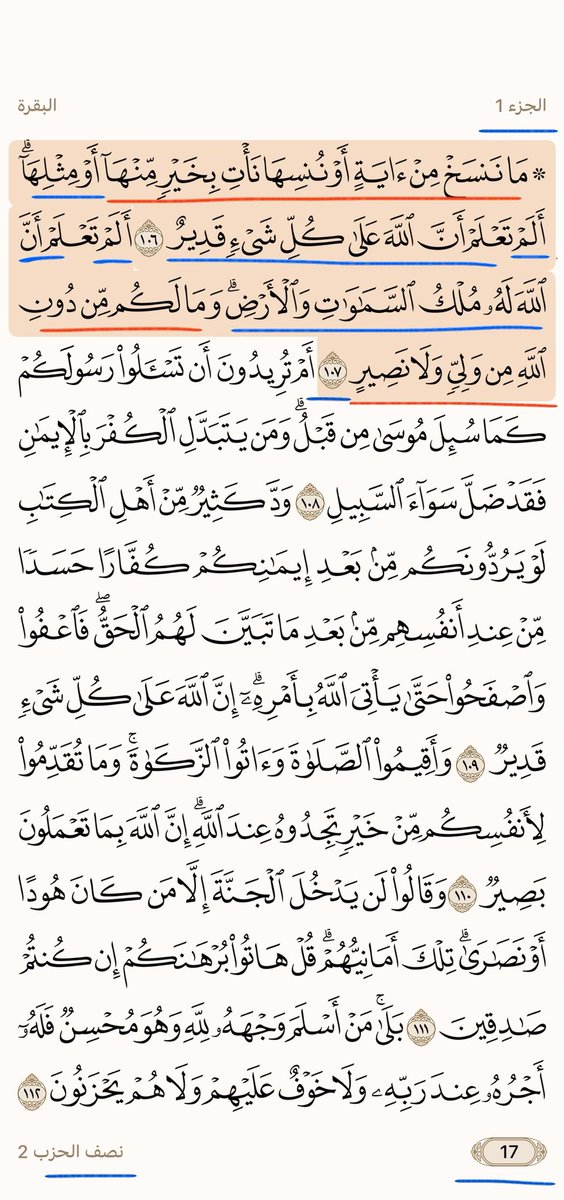 الجزء 1 البقرة
۞ مَا نَنسَخْ مِنْ ءَايَةٍ أَوْ نُنسِهَا نَأْتِ بِخَيْرٍ مِّنْهَآ أَوْ مِثْلِهَآ ۗ
أَلَمْ تَعْلَمْ أَنَّ ٱللَّهَ عَلَىٰ كُلِّ شَىْءٍ قَدِيرٌ ١٠٦ أَلَمْ تَعْلَمْ أَنَّ
ٱللَّهَ لَهُۥ مُلْكُ ٱلسَّمَـٰوَٰتِ وَٱلْأَرْضِ ۗ وَمَا لَكُم مِّن دُونِ
ٱللَّهِ مِن وَلِىٍّ وَلَا نَصِيرٍ ١٠٧ أَمْ تُرِيدُونَ أَن تَسْـَٔلُوا۟ رَسُولَكُمْ
كَمَا سُئِلَ مُوسَىٰ مِن قَبْلُ ۗ وَمَن يَتَبَدَّلِ ٱلْكُفْرَ بِٱلْإِيمَـٰنِ
فَقَدْ ضَلَّ سَوَآءَ ٱلسَّبِيلِ ١٠٨ وَدَّ كَثِيرٌ مِّنْ أَهْلِ ٱلْكِتَـٰبِ
لَوْ يَرُدُّونَكُم مِّنۢ بَعْدِ إِيمَـٰنِكُمْ كُفَّارًا حَسَدًا
مِّنْ عِندِ أَنفُسِهِم مِّنۢ بَعْدِ مَا تَبَيَّنَ لَهُمُ ٱلْحَقُّ ۖ فَٱعْفُوا۟
وَٱصْفَحُوا۟ حَتَّىٰ يَأْتِىَ ٱللَّهُ بِأَمْرِهِۦٓ ۗ إِنَّ ٱللَّهَ عَلَىٰ كُلِّ شَىْءٍ
قَدِيرٌ ١٠٩ وَأَقِيمُوا۟ ٱلصَّلَوٰةَ وَءَاتُوا۟ ٱلزَّكَوٰةَ ۚ وَمَا تُقَدِّمُوا۟
لِأَنفُسِكُم مِّنْ خَيْرٍ تَجِدُوهُ عِندَ ٱللَّهِ ۗ إِنَّ ٱللَّهَ بِمَا تَعْمَلُونَ
بَصِيرٌ ١١٠ وَقَالُوا۟ لَن يَدْخُلَ ٱلْجَنَّةَ إِلَّا مَن كَانَ هُودًا
أَوْ نَصَـٰرَىٰ ۗ تِلْكَ أَمَانِيُّهُمْ ۗ قُلْ هَاتُوا۟ بُرْهَـٰنَكُمْ إِن كُنتُمْ
صَـٰدِقِينَ ١١١ بَلَىٰ ۚ مَنْ أَسْلَمَ وَجْهَهُۥ لِلَّهِ وَهُوَ مُحْسِنٌ فَلَهُۥٓ
أَجْرُهُۥ عِندَ رَبِّهِۦ وَلَا خَوْفٌ عَلَيْهِمْ وَلَا هُمْ يَحْزَنُونَ ١١٢
17 نصف الحزب 2